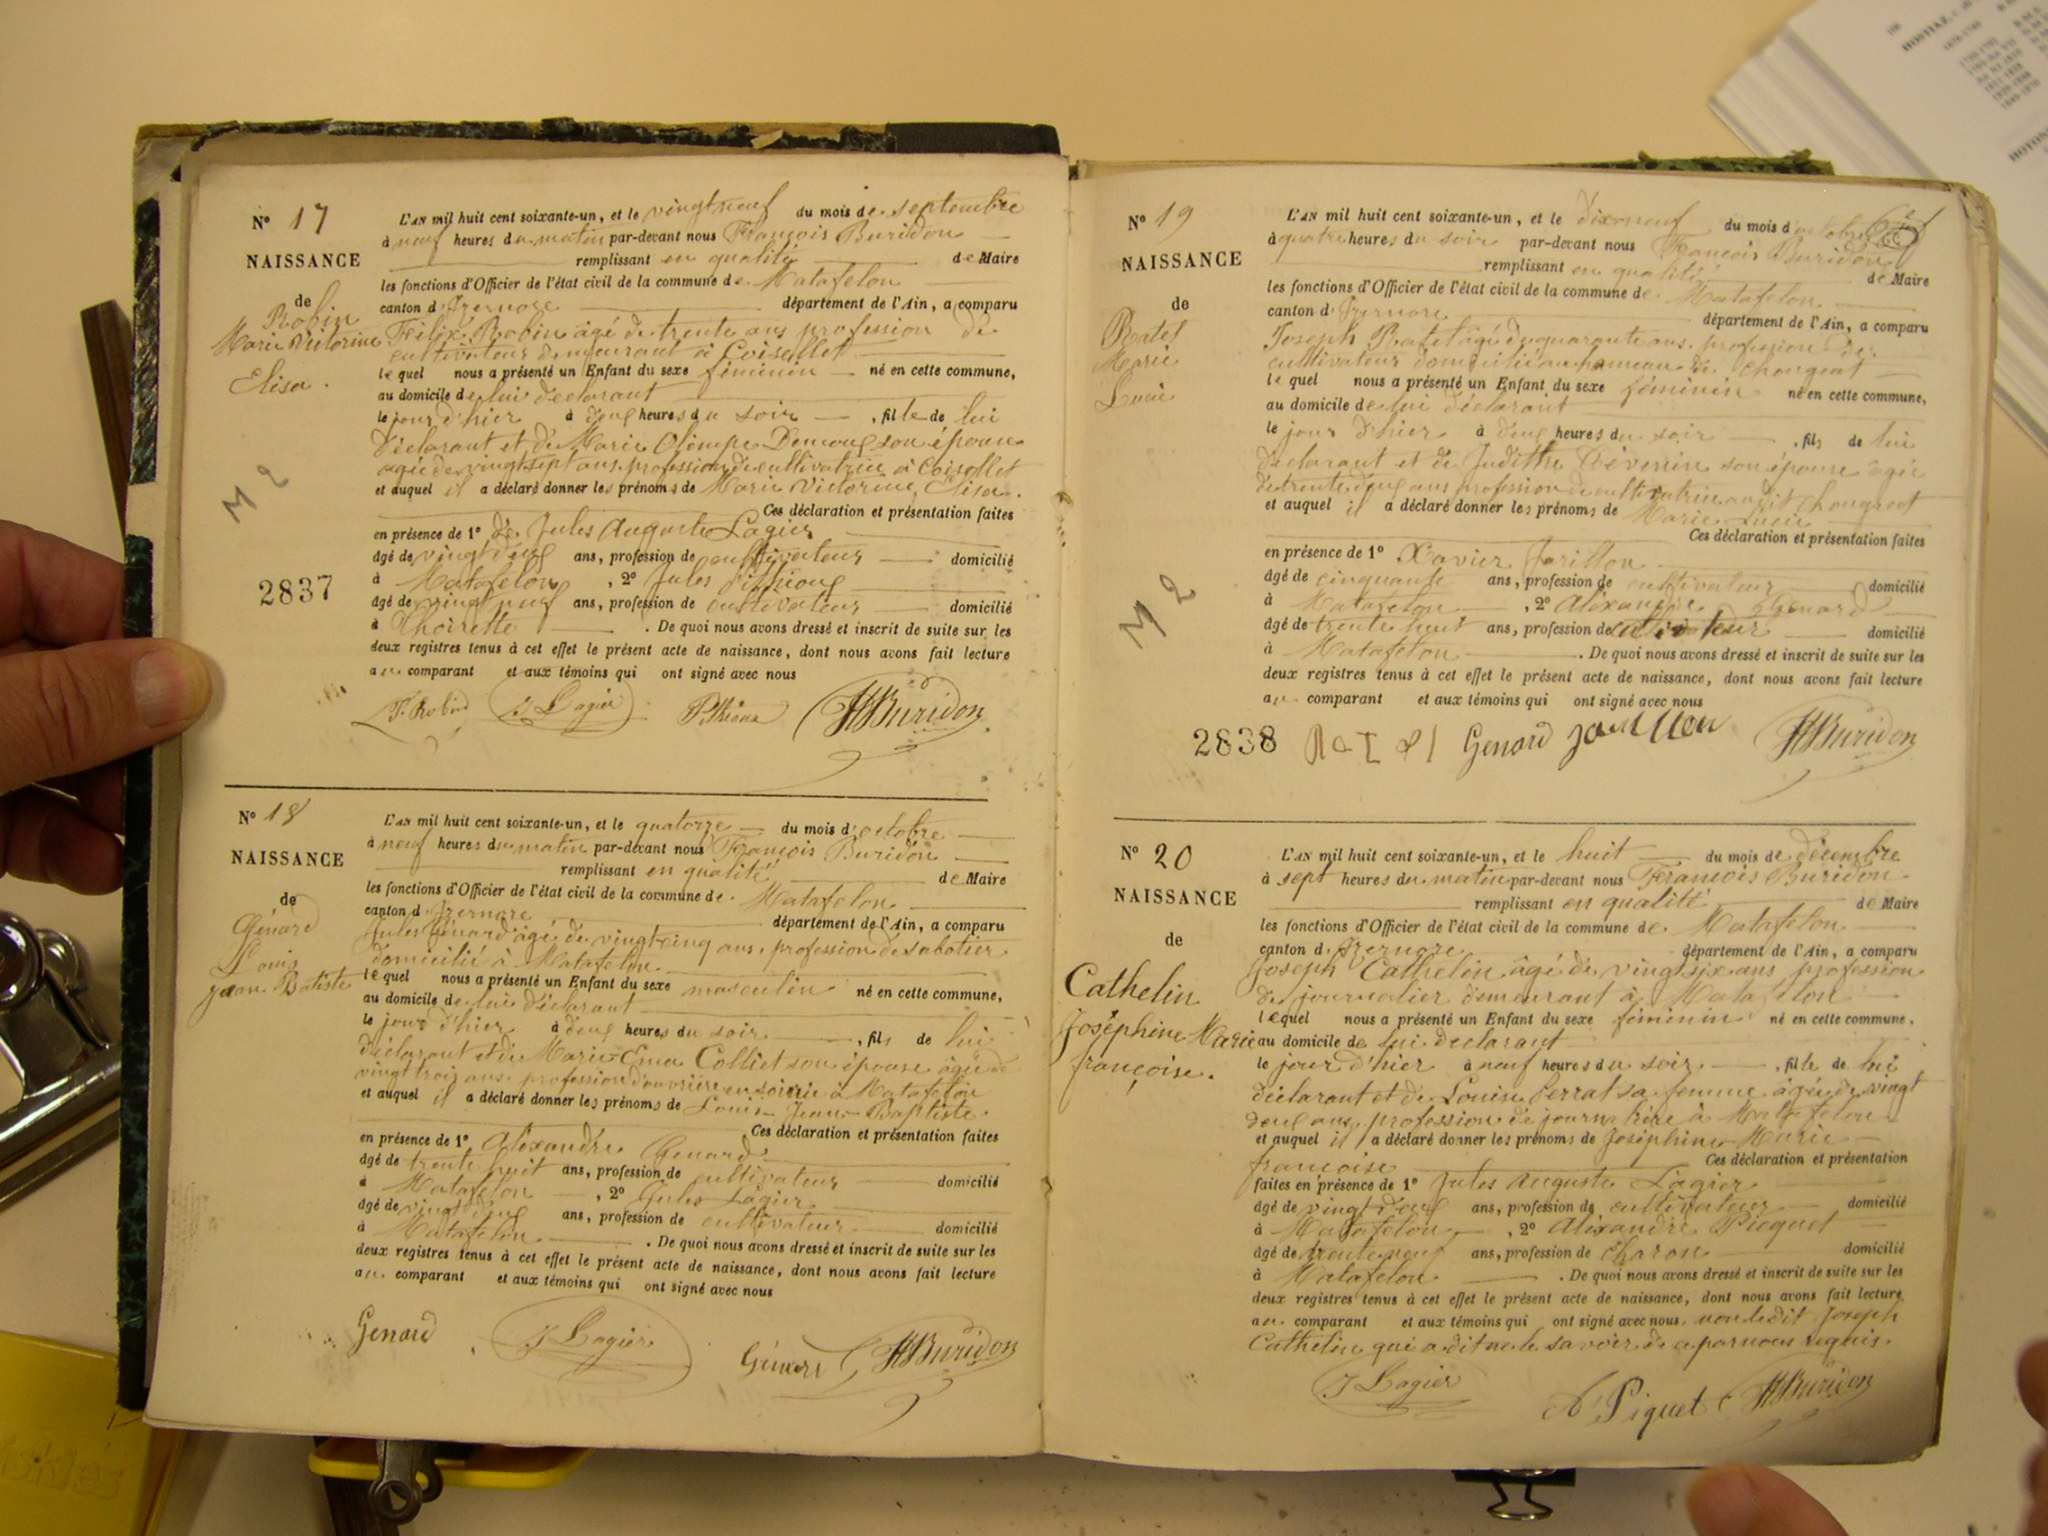 N° 17
NAISSANCE
de
Robin
Marie Victorine
Elisa.
M 2
2837
L'AN mil huit cent soixante-un, et le vingt neuf du mois de septembre
à neuf heures du matin par-devant nous François Buridon
remplissant en qualité de Maire
les fonctions d'Officier de l'état civil de la commune de Matafelon
canton d'Izernore département de l'Ain, a comparu
Félix Robin âgé de trente ans profession de
cultivateur demeurant à Coisellet
lequel nous a présenté un Enfant du sexe féminin né en cette commune,
au domicile de lui déclarant
le jour d'hier à deux heures du soir, fille de lui
déclarant et de Marie Olimpe son épouse
agée de vingt sept ans, profession de cultivatrice à Coisellet
et auquel il a déclaré donner les prénoms de Marie Victorine, Elisa.
Ces déclaration et présentation faites
en présence de 1° de Jules Auguste Lagier
âgé de vingt deux ans, profession de cultivateur domicilié
à Matafelon, 2° Jules
âgé de vingt neuf ans, profession de cultivateur domicilié
à Thoirette. De quoi nous avons dressé et inscrit de suite sur les
deux registres tenus à cet effet le présent acte de naissance, dont nous avons fait lecture
au comparant et aux témoins qui ont signé avec nous
F. Robin J Lagier Buridon
N° 18
NAISSANCE
de
Génard
Louis
jean Batiste
L'AN mil huit cent soixante-un, et le quatorze du mois d'octobre
à neuf heures du matin par-devant nous François Buridon
remplissant en qualité de Maire
les fonctions d'Officier de l'état civil de la commune de Matafelon
canton d'Izernore département de l'Ain, a comparu
Jules Génard âgé de vingt cinq ans, profession de sabotier
domicilié à Matafelon
lequel nous a présenté un Enfant du sexe masculin né en cette commune,
au domicile de lui déclarant
le jour d'hier à deux heures du soir, fils de lui
déclarant et de Marie Ema Colliet son épouse âgée de
vingt trois ans, profession d'ouvrière en soierie à Matafelon
et auquel il a déclaré donner les prénoms de Louis Jean Baptiste.
Ces déclaration et présentation faites
en présence de 1° Alexandre Genard
âgé de trente huit ans, profession de cultivateur domicilié
à Matafelon, 2° Jules Lagier
âgé de vingt deux ans, profession de cultivateur domicilié
à Matafelon. De quoi nous avons dressé et inscrit de suite sur les
deux registres tenus à cet effet le présent acte de naissance, dont nous avons fait lecture
au comparant et aux témoins qui ont signé avec nous
Genard J Lagier Génard Buridon
N° 19
NAISSANCE
de
Ratel
Marie
Lucie
M 2
2838
L'AN mil huit cent soixante-un, et le dix neuf du mois d'octobre
à quatre heures du soir par-devant nous François Buridon
remplissant en qualité de Maire
les fonctions d'Officier de l'état civil de la commune de Matafelon
canton d'Izernore département de l'Ain, a comparu
Joseph Ratel âgé de quarante ans, profession de
cultivateur domicilié au hameau de Chongeat
lequel nous a présenté un Enfant du sexe féminin né en cette commune,
au domicile de lui déclarant
le jour d'hier à deux heures du soir, fils de lui
déclarant et de Judith son épouse agée
de trente deux ans profession de cultivatrice au dit Chongeat
et auquel il a déclaré donner les prénoms de Marie Lucie
Ces déclaration et présentation faites
en présence de 1° Xavier Jarillon
âgé de cinquante ans, profession de cultivateur domicilié
à Matafelon, 2° Alexandre Génard
âgé de trente huit ans, profession de cultivateur domicilié
à Matafelon. De quoi nous avons dressé et inscrit de suite sur les
deux registres tenus à cet effet le présent acte de naissance, dont nous avons fait lecture
au comparant et aux témoins qui ont signé avec nous
Ratel Genard Jarillon Buridon
N° 20
NAISSANCE
de
Cathelin
Joséphine Marie
françoise.
L'AN mil huit cent soixante-un, et le huit du mois de décembre
à sept heures du matin par-devant nous François Buridon
remplissant en qualité de Maire
les fonctions d'Officier de l'état civil de la commune de Matafelon
canton d'Izernore département de l'Ain, a comparu
Joseph Cathelin âgé de vingt six ans profession
de journalier demeurant à Matafelon
lequel nous a présenté un Enfant du sexe féminin né en cette commune,
au domicile de lui déclarant
le jour d'hier à neuf heures du soir, fille de lui
déclarant et de Louise Perrat sa femme, âgée de vingt
deux ans, profession de journalière à Matafelon
et auquel il a déclaré donner les prénoms de Joséphine Marie
françoise Ces déclaration et présentation
faites en présence de 1° Jules Auguste Lagier
âgé de vingt deux ans, profession de cultivateur domicilié
à Matafelon, 2° Alexandre Picquet
âgé de trente neuf ans, profession de charon domicilié
à Matafelon. De quoi nous avons dressé et inscrit de suite sur les
deux registres tenus à cet effet le présent acte de naissance, dont nous avons fait lecture
au comparant et aux témoins qui ont signé avec nous, non ledit Joseph
Cathelin qui a dit ne le savoir de ce par nous requis.
J Lagier A Piquet Buridon